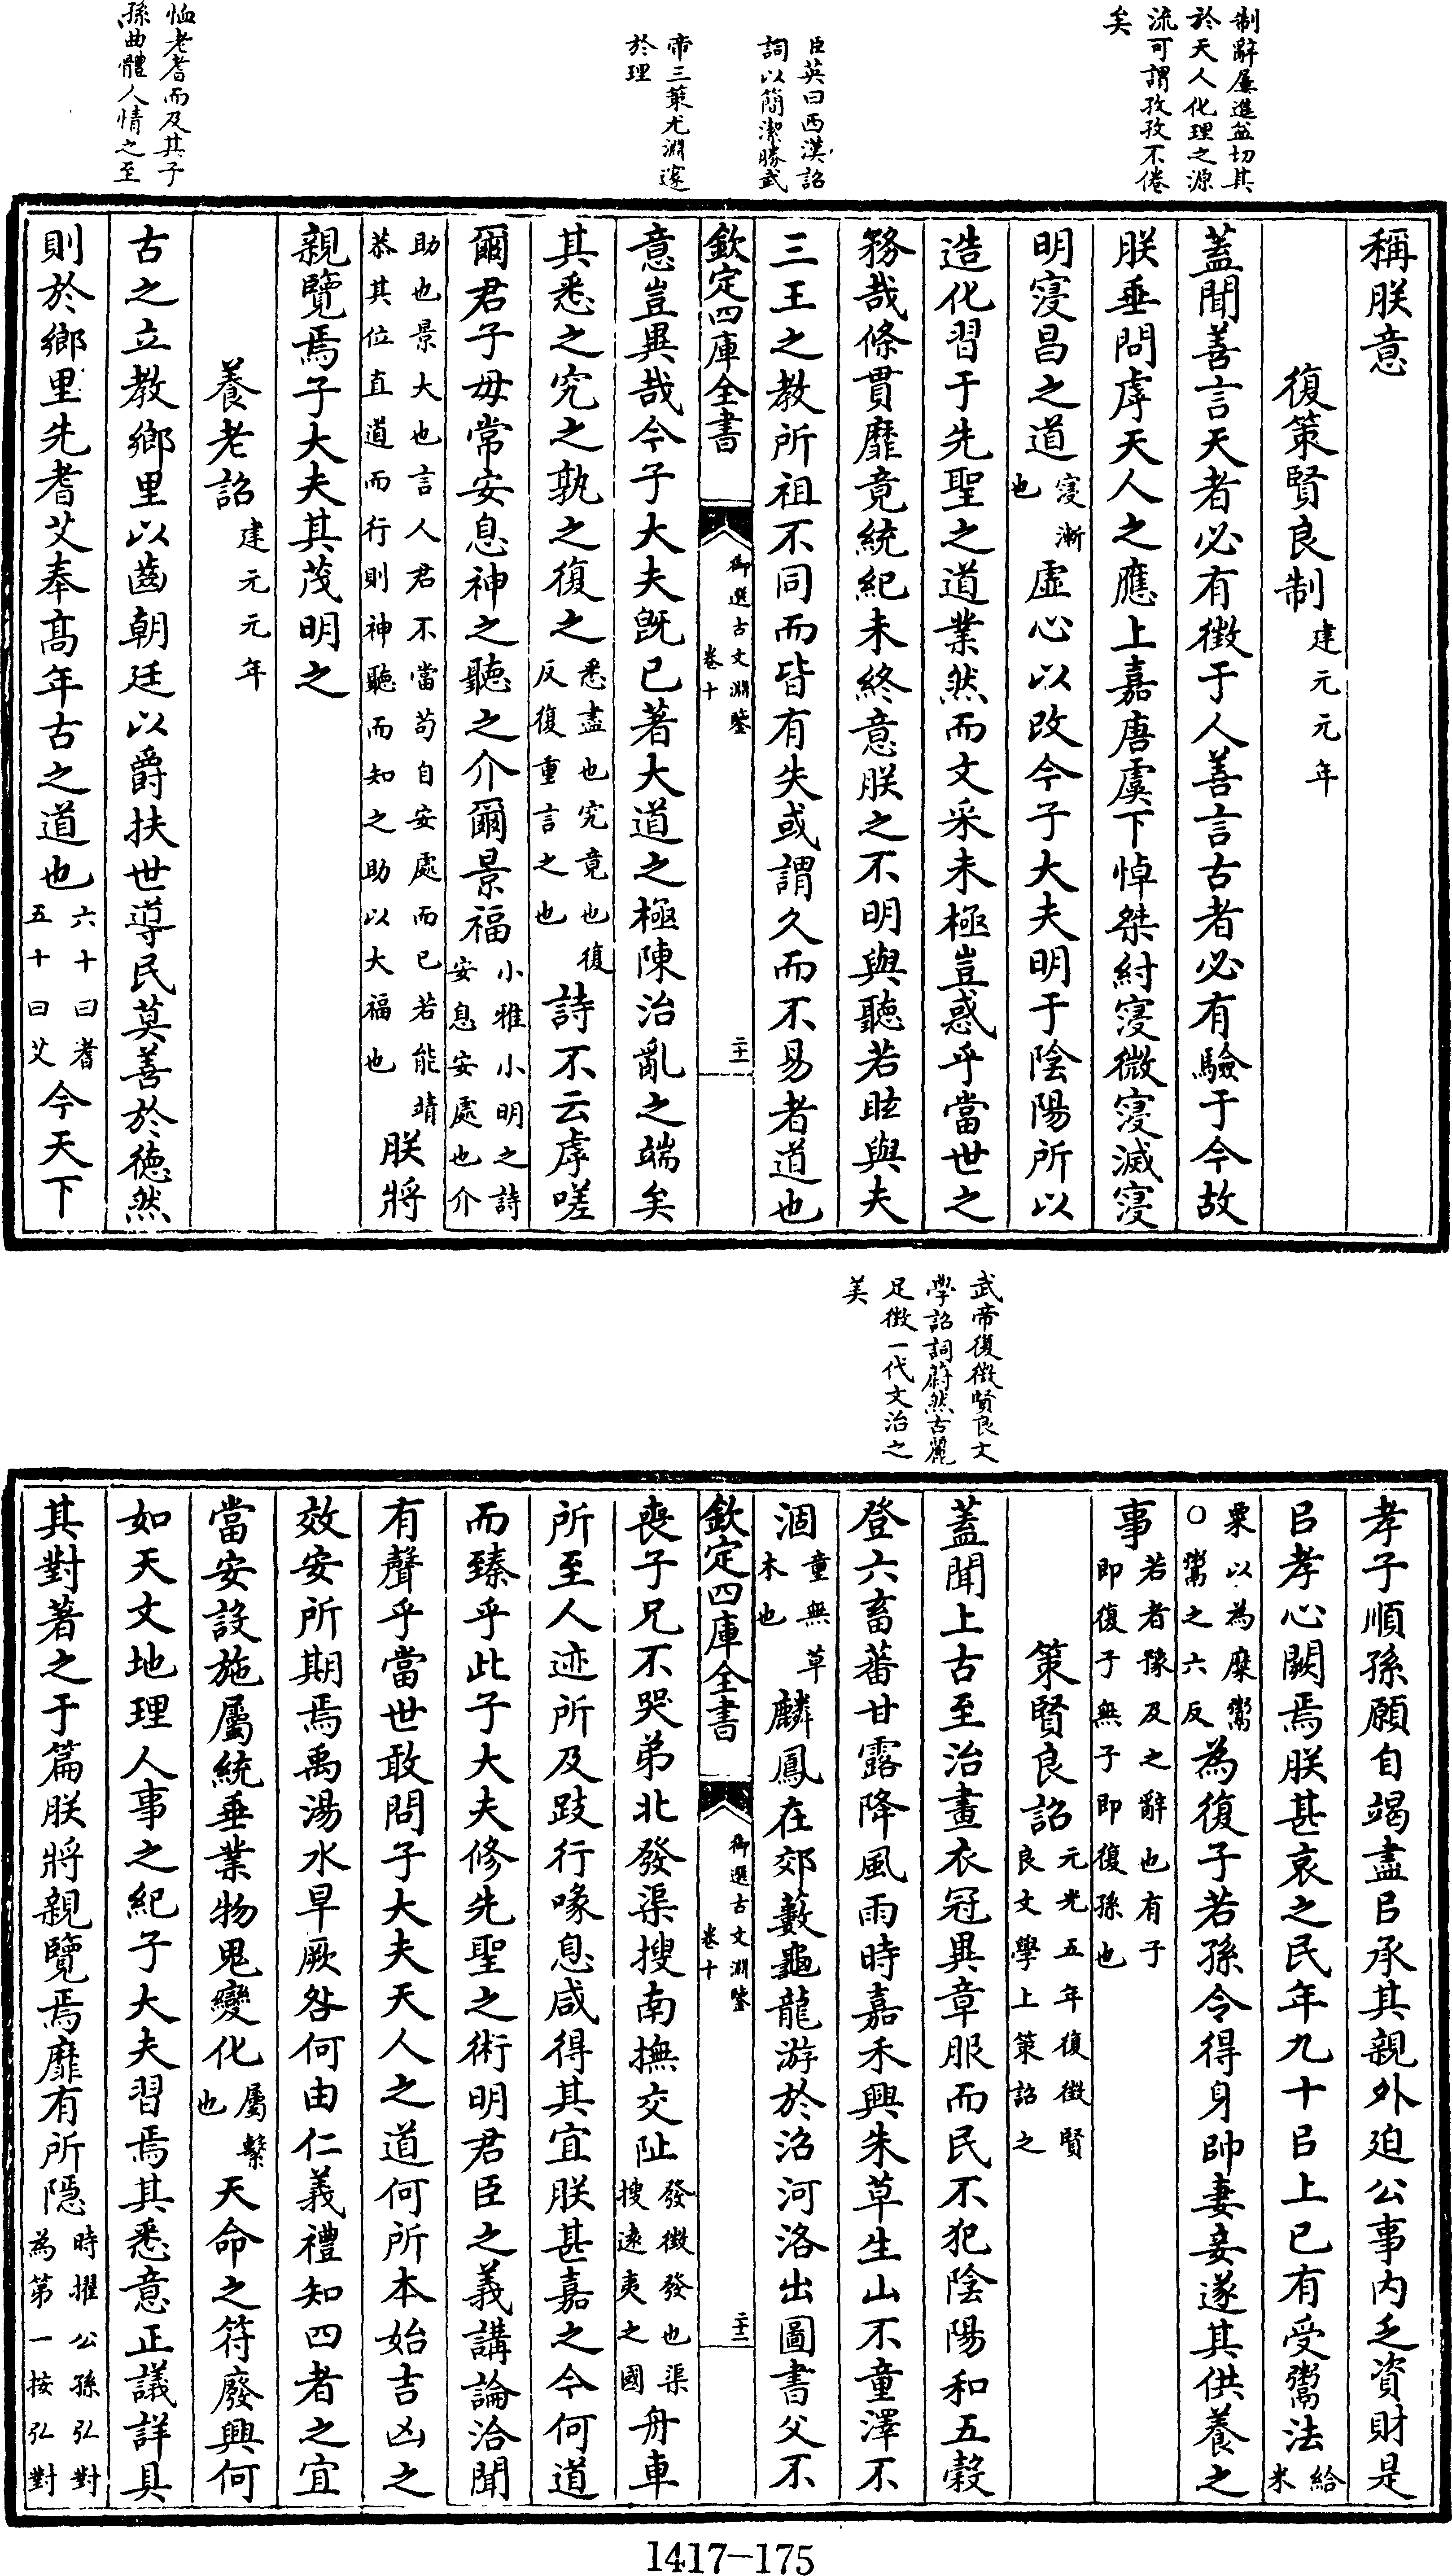 制辭屢進益切其
於天人化理之源
流可謂孜孜不倦
矣
臣英曰西漢詔
詞以簡潔勝武
帝三策尤淵邃
於理
恤老耆而及其子
孫曲體人情之至
稱朕意
復策賢良制建元元年
蓋聞善言天者必有徵于人善言古者必有驗于今故
朕垂問虖天人之應上嘉唐虞下悼桀紂寖微寖滅寖
明寖昌之道寖漸也虛心以改今子大夫明于陰陽所以
造化習于先聖之道業然而文采未極豈惑乎當世之
務哉條貫靡竟統紀未終意朕之不明與聽若眩與夫
三王之教所祖不同而皆有失或謂久而不易者道也
欽定四庫全書 御選古文淵鑒卷十 二十一
意豈異哉今子大夫既已著大道之極陳治亂之端矣
其悉之究之孰之復之悉盡也究竟也復反復重言之也詩不云虖嗟
爾君子毋常安息神之聽之介爾景福小雅小明之詩安息安處也介
助也景大也言人君不當苟自安處而已若能靖恭其位直道而行則神聽而知之助以大福也朕將
親覽焉子大夫其茂明之
養老詔建元元年
古之立教鄉里以齒朝廷以爵扶世導民莫善於德然
則於鄉里先耆艾奉高年古之道也六十曰耆五十曰艾今天下
武帝復徵賢良文
學詔詞蔚然古麗
足徵一代文治之
美
孝子順孫願自竭盡㠯承其親外迫公事內乏資財是
㠯孝心闕焉朕甚哀之民年九十㠯上已有受鬻法給米
粟以為糜鬻○鬻之六反為復子若孫令得身帥妻妾遂其供養之
事若者豫及之辭也有子即復子無子即復孫也
策賢良詔元光五年復徵賢良文學上策詔之
蓋聞上古至治畫衣冠異章服而民不犯陰陽和五穀
登六畜蕃甘露降風雨時嘉禾興朱草生山不童澤不
涸童無草木也麟鳳在郊藪龜龍游於沼河洛出圖書父不
欽定四庫全書 御選古文淵鑒卷十 二十二
喪子兄不哭弟北發渠搜南撫交阯發徵發也渠搜遠夷之國舟車
所至人迹所及跂行喙息咸得其宜朕甚嘉之今何道
而臻乎此子大夫修先聖之術明君臣之義講論洽聞
有聲乎當世敢問子大夫天人之道何所本始吉凶之
效安所期焉禹湯水旱厥咎何由仁義禮知四者之宜
當安設施屬統垂業物鬼變化屬繫也天命之符廢興何
如天文地理人事之紀子大夫習焉其悉意正議詳具
其對著之于篇朕將親覽焉靡有所隱時擢公孫弘對為第一按弘對
1417—175